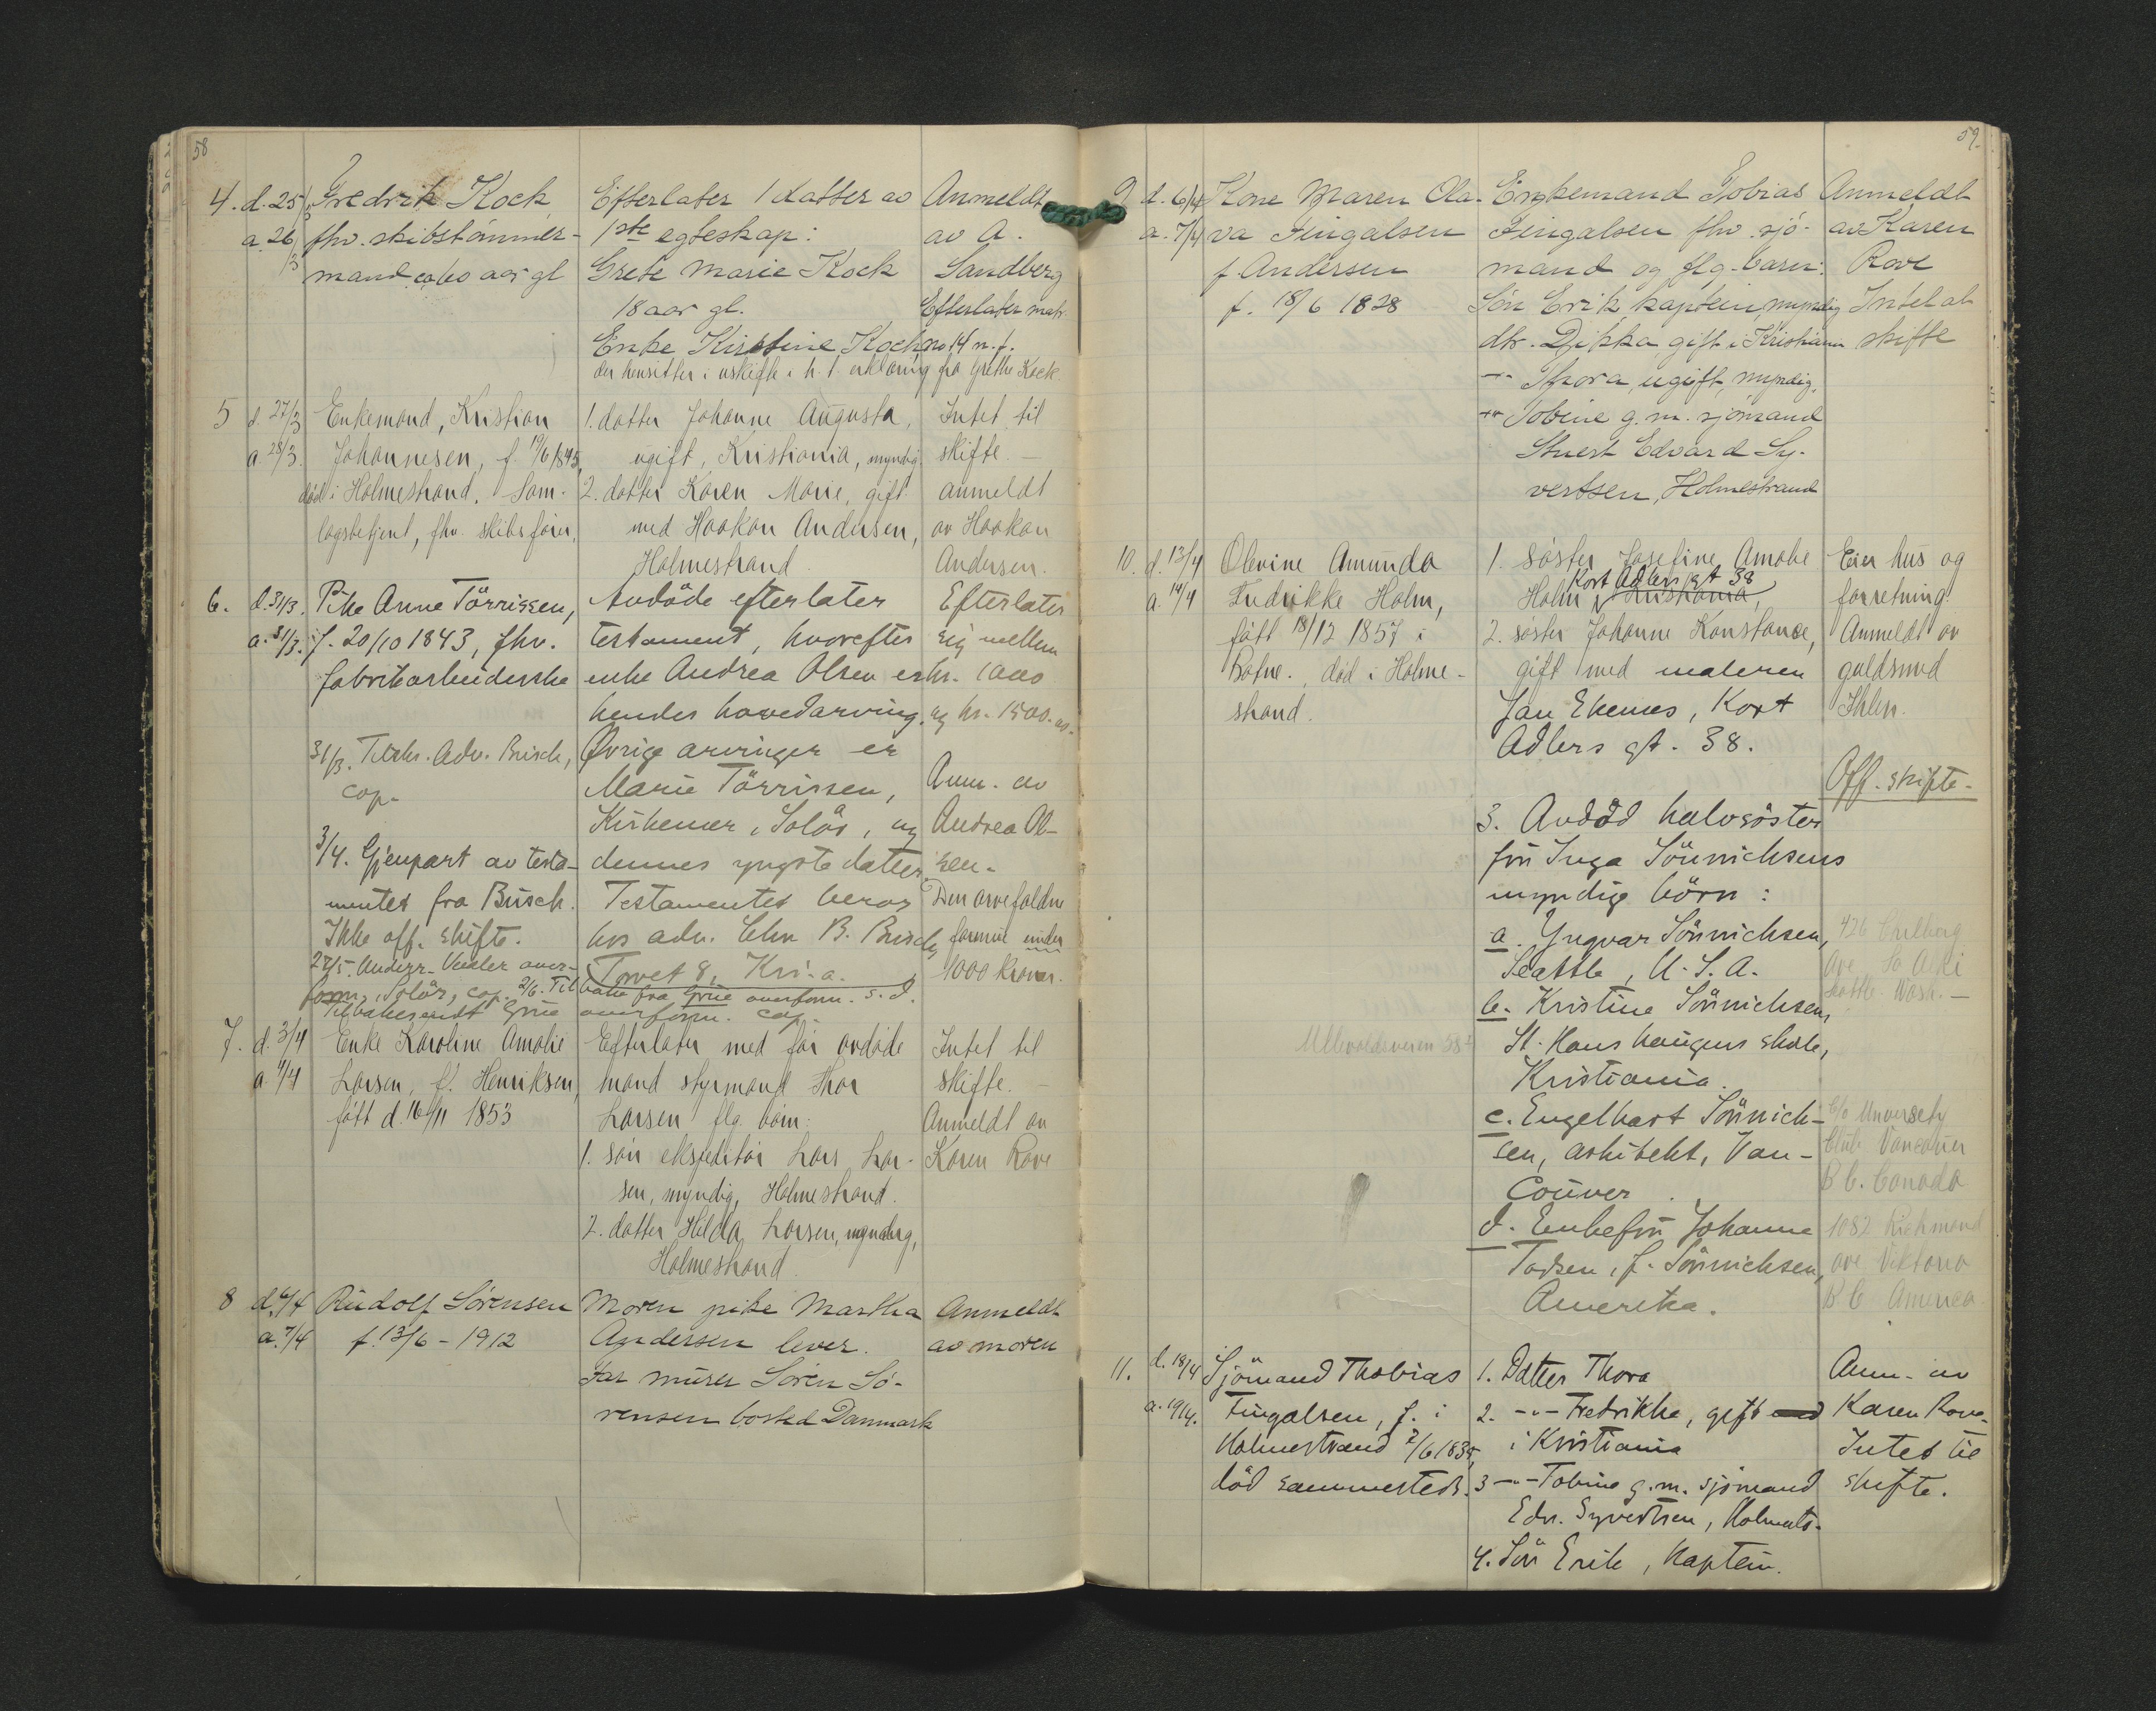 58
4. d. 25/3 Fredrik Kock Efterlater 1 datter av Anmeldt
a. 26/3 fhv. skibstømmer- 1ste egteskap: av A.
mand ca 60 aar gl Grete Marie Kock Sandberg
18 aar gl. Efterlater matr.
Enke Kirstine Koch no 14 n.f.
der hensitter i uskifte i h.t. erklæring fra Grethe Kock
5 d. 27/3 Enkemand, Kristian 1. datter Johanne Augusta, Intet til
a. 28/3. Johannesen, f. 19/6 1845, ugift, Kristiania, myndig skifte. —
død i Holmestrand. Sam- 2. datter Karen Marie, gift anmeldt
lagsbetjent, fhv. skibsfører, med Haakon Andersen, av Haakon
Holmestrand. Andersen.
6. d. 31/3. Pike Anne Tørrissen, Avdøde efterlater Efterlater
a. 31/3. f. 20/10 1843, fhv. testament, hvorefter sig mellem
fabrikarbeiderske enke Andrea Olsen er kr. 1000
hendes hovedarving. og kr. 1500.
31/3. Adv. Busch, Øvrige arvinger er
cop. Marie Tørrissen, Anm. av
Kirkener, Solør, og Andrea Ol-
3/4. Gjenpart av testa- dennes yngste datter. sen.
mentet fra Busch. Testamentet beror Den arvefaldne
Ikke off. skifte. hos adv. Chr B. Busch, formue under
27/5. over- Torvet 8, Kr.a. 1000 kroner.
form., Solør, cop. 2/6. Tilbake fra Grue overform. s.d.
Tilbakesendt Grue overform. cop.
7. d. 3/4 Enke Karoline Amalie Efterlater med før avdøde Intet til
a. 4/4 Larsen, f. Henriksen, mand styrmand Thor skifte. —
født d. 16/11 1853 Larsen flg. børn: Anmeldt av
1. søn ekspeditør Lars Lar- Karen Rove
sen, myndig, Holmestrand.
2. datter Hilda Larsen, myndig,
Holmestrand
8 d. 4/4 Rudolf Sørensen Moren pike Martha Anmeldt
a. 7/4 f. 13/6 - 1912 Andersen lever. av moren
Far murer Sören Sö-
rensen bosted Danmark
59.
9 d. 6/4 Kone Maren Ola- Enkemand Tobias Anmeldt
a. 7/4 va Fingalsen Fingalsen fhv. sjö- av Karen
f. Andersen mand og flg. barn: Rove
f. 18/6 1828 Sön Erik, kaptein, myndig Intet at
dtr. Dikka gift i Kristiania skifte
—"— Thora, ugift, myndig,
—"— Tobine g.m. sjömand
Edvard Sy-
vertsen, Holmestrand
10. d. 13/4 Olevine Amunda 1. Søster Josefine Amalie Eier hus og
Kort Adlers gt 38
a. 14/4 Fredrikke Holm, Holm, i Kristiania, forretning.
født 18/12 1857 i 2. søster Johanne Konstance, Anmeldt av
Botne. død i Holme- gift med maleren guldsmed
strand. Jan Ekenes, Kort Ihlen.
Adlers gt. 38.
Off. skifte.
3. Avdød halvsøster
fru Inga Sönnichsens
myndige börn:
a. Yngvar Sönnichsen, 426
Seattle, U.S.A. Ave So Alki
Seattle Wash. —
b. Kristine Sönnichsen,
Ullevoldsveien St. Hans haugens skole,
Kristiania.
c. Engelhart Sönnich- C/o University
sen, arkitekt, Van- Club Vancouver
couver. B C. Canada
d. Enkefru Johanne 1082 Richmond
Todsen, f. Sönnichsen, ave Viktoria
Amerika. B C America
11. d. 18/4 Sjömand Thobias 1. Datter Thora Anm. av
a. 19/4. Fingalsen, f. i 2. —"— Fredrikke, gift med Karen Rove.
Holmestrand 2/6 1835, i Kristiania Intet til
död sammesteds. 3 —"— Tobine g.m. sjömand skifte.
Edv. Syvertsen, Holmestr.
4. Sön Erik, Kaptein.